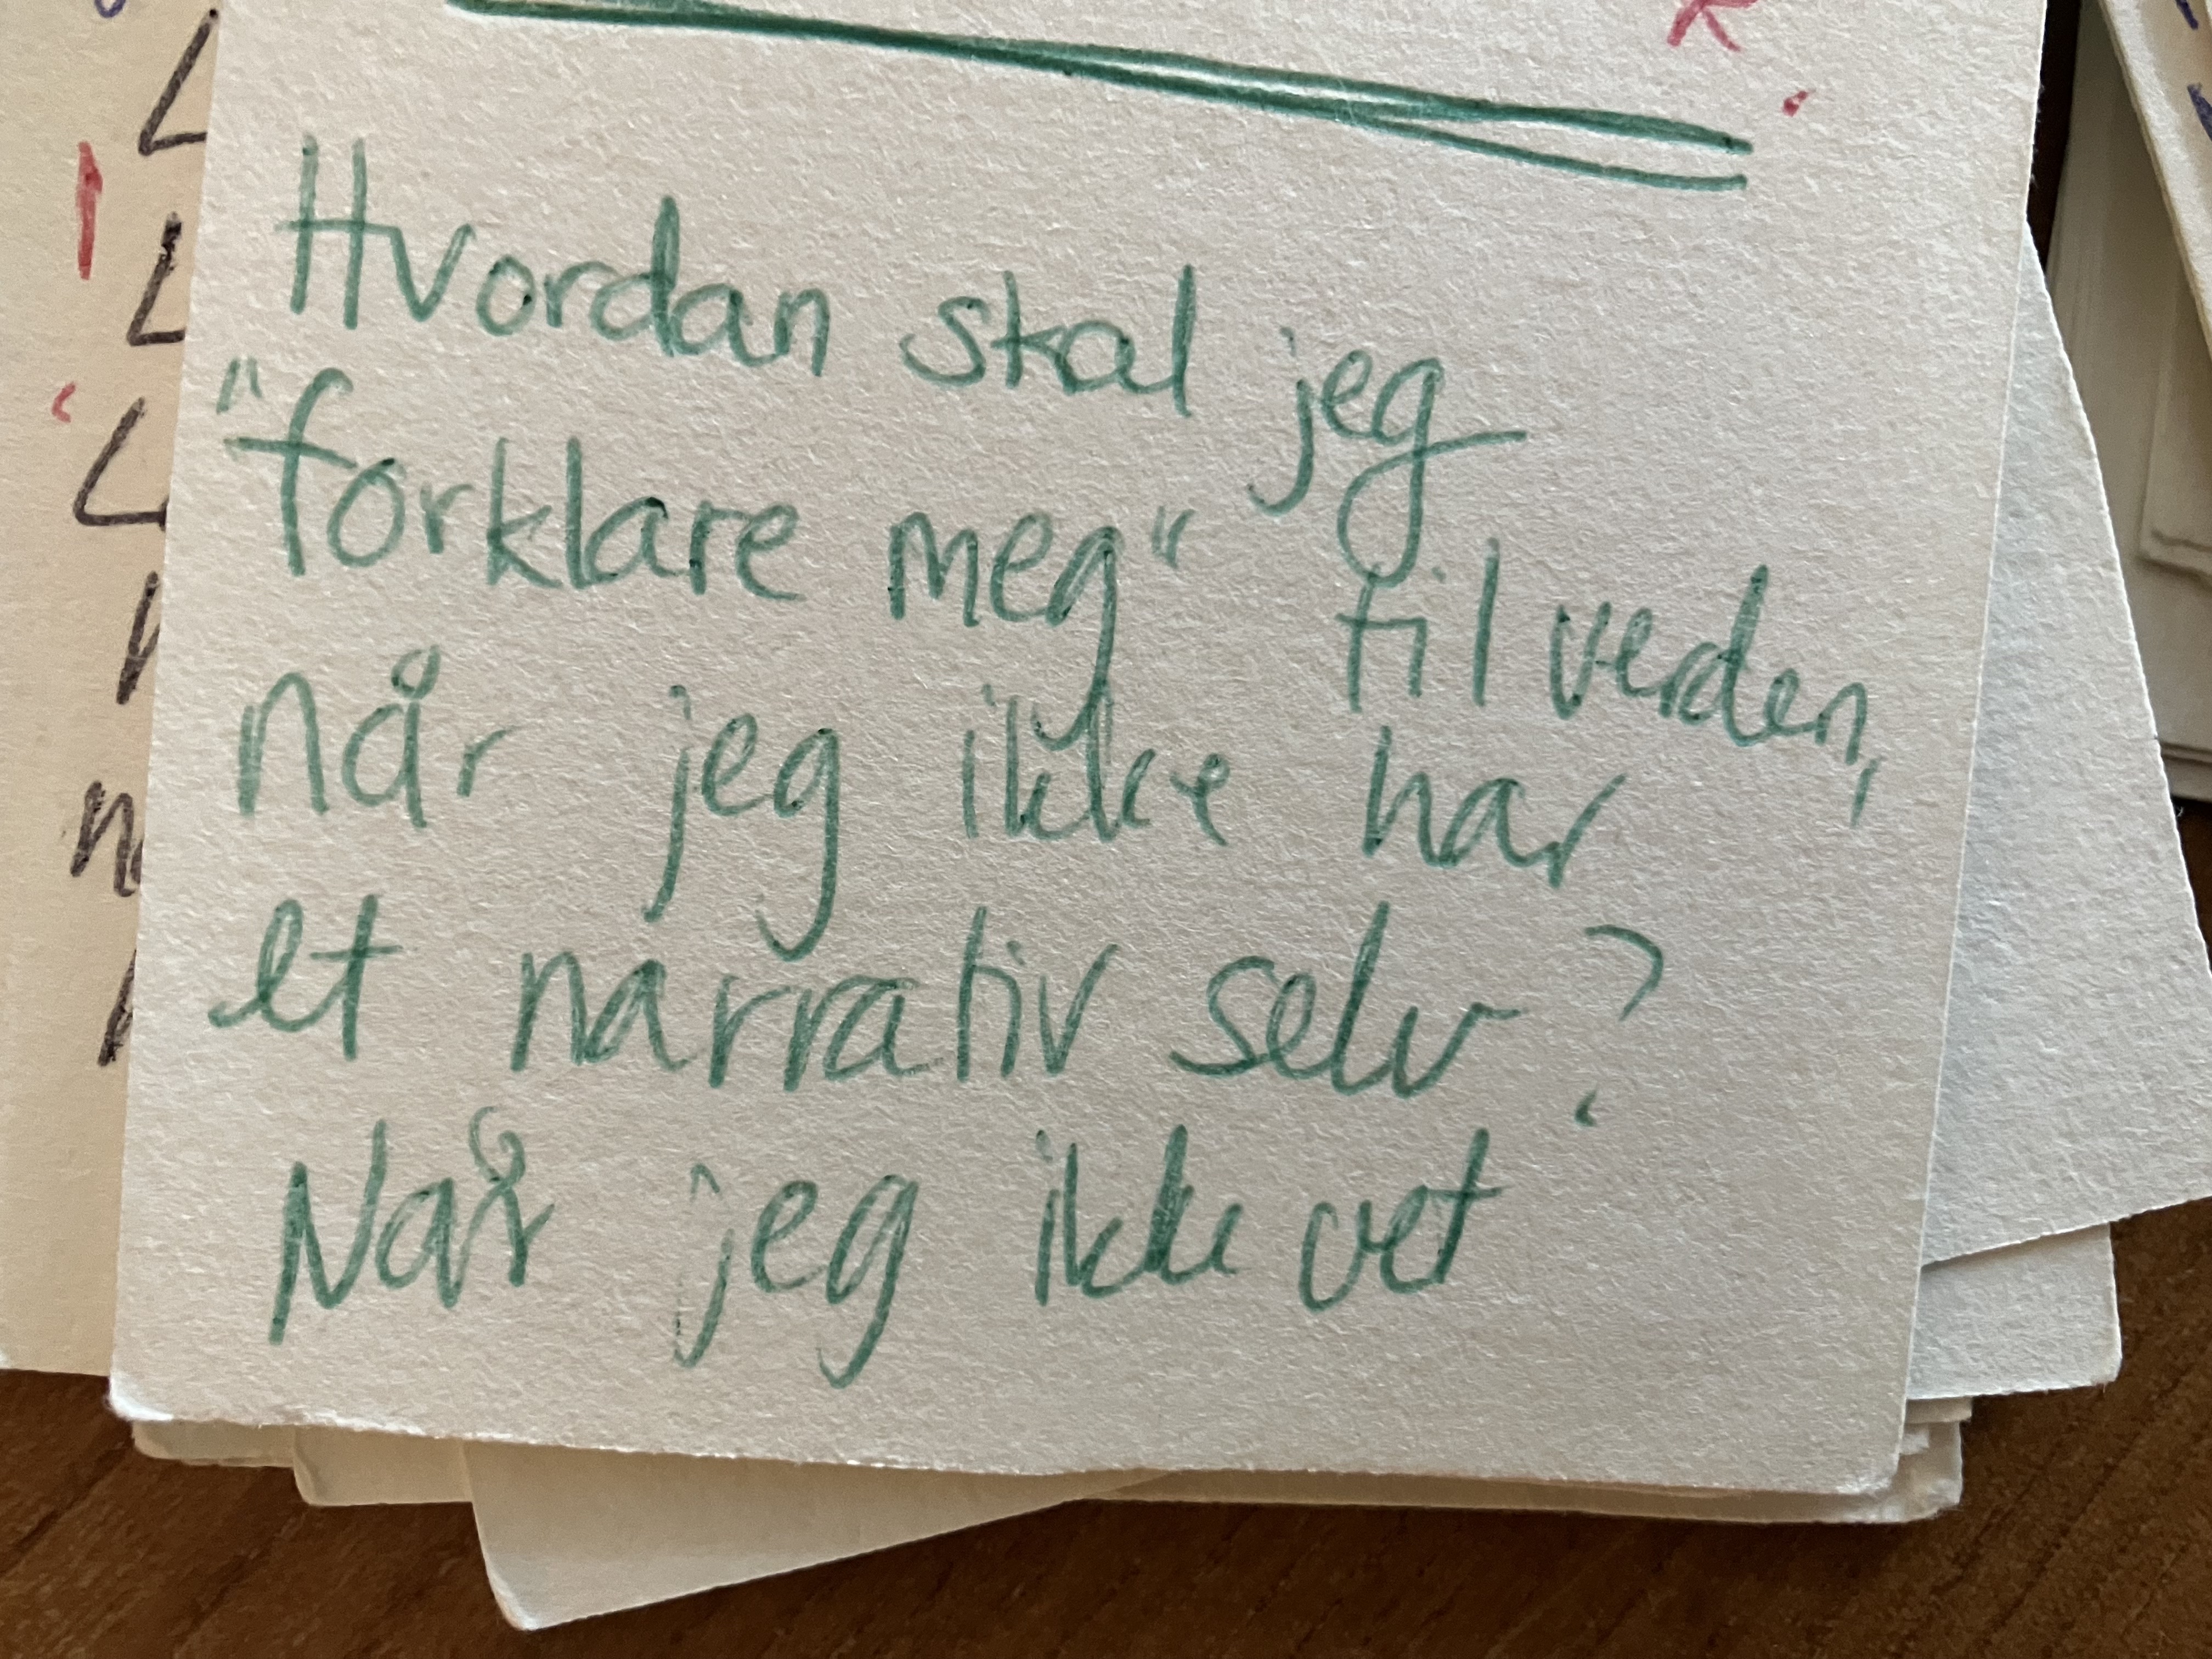 Hvordan skal jeg
"forklare meg" til verden,
når jeg ikke har
et narrativ selv?
Når jeg ikke vet